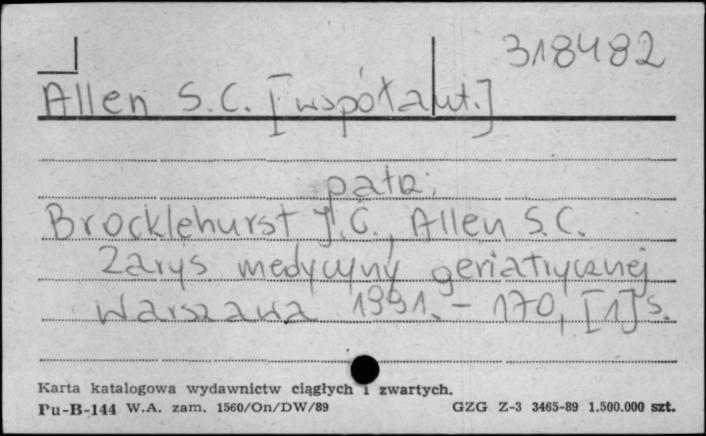 318482
Allen S.C. [współaut.]
patrz:
Brocklehurst J.C., Allen S.C.
Zarys medycyny geriatrycznej
Warszawa 1991. – 170, [1] s.
Karta katalogowa wydawnictw ciągłych i zwartych.
Pu-B-144 W.A. zam. 1560/On/DW/89 GZG Z-3 3465-89 1.500.000 szt.